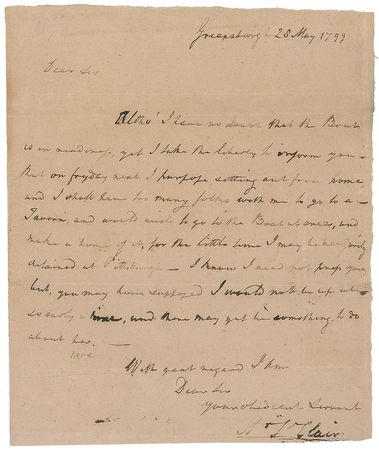 Greensburgh 28 May 1799
Dear Sir
Altho' I have no doubt that the Boat
is in readiness, yet I take the liberty to inform you
that on fryday next I purpose setting out from home
and I shall have too many folks with me to go to a
Tavern, and would wish to go to the Boat at once, and
make a home of it, for the little time I may be necessarily
detained at Pittsburgh — I know I need not press you
but, you may have supposed I would not be up at
so early a time, and there may yet be something to do
about her. —
here
With great regard I am
Dear Sir
your obedient Servant
Ar St Clair